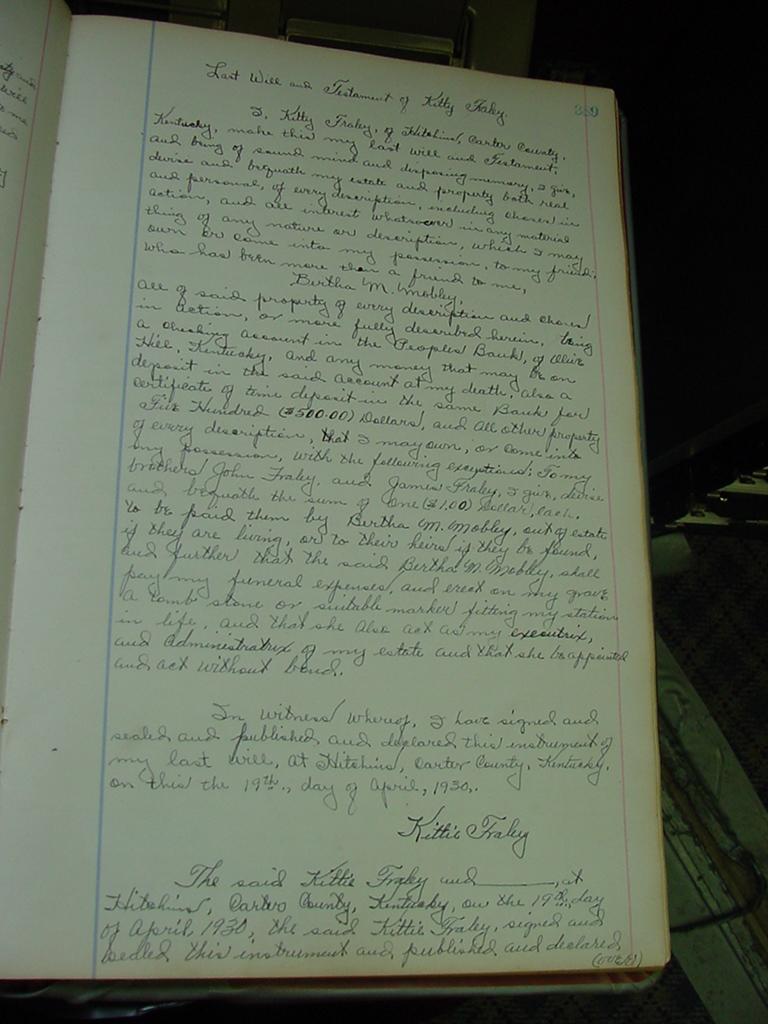 389
Last Will and Testament of Kitty Fraley.
I, Kitty Fraley, of Hitchins, Carter County,
Kentucky, make this my last will and Testament,
and being of sound mind and disposing memory, I give,
devise and bequath my estate and property both real
and personal, of every description, including choses in
action, and all interest whatsoever in any material
thing of any nature or description, which I may
own or come into my possession, to my friend;
who has been more than a friend to me,
Bertha M. Mobley,
all of said property of every description and choses
in action, or more fully described herein, being
a checking account in the Peoples Bank, of Olive
Hill, Kentucky, and any money that may be on
deposit in the said account at my death, also a
certificate of time deposit in the same Bank for
Five Hundred ($500.00) Dollars, and all other property
of every description, that I may own, or come into
my possession, with the following exceptions: To my
brothers John Fraley, and James Fraley, I give, devise
and bequath the sum of One ($1.00) Dollar, each.
to be paid them by Bertha M. Mobley, out of estate
if they are living, or to their heirs if they be found,
and further that the said Bertha M. Mobley, shall
pay my funeral expenses, and erect on my grave
a tomb stone or suitable marker fitting my station
in life, and that she also act as my executrix,
and administratrix of my estate and that she be appointed
and act without bond.
In witness whereof, I have signed and
sealed and published and declared this instrument of
my last will, at Hitchins, Carter County, Kentucky.
on this the 19th., day of April, 1930,.
Kittie Fraley
The said Kittie Fraley and ______, at
Hitchins, Carter County, Kentucky, on the 19th, day
of April, 1930, the said Kittie Fraley, signed and
sealed this instrument and published and declared
(over)